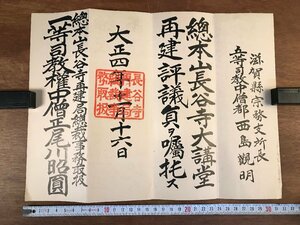 滋賀縣宗務支所長
五等司教中僧都西島觀明
總本山長谷寺大講堂
再建評議員ヲ囑托ス
大正四年十二月十六日
總本山長谷寺再建局總裁事務取扱
一等司教權中僧正尾川昭圓